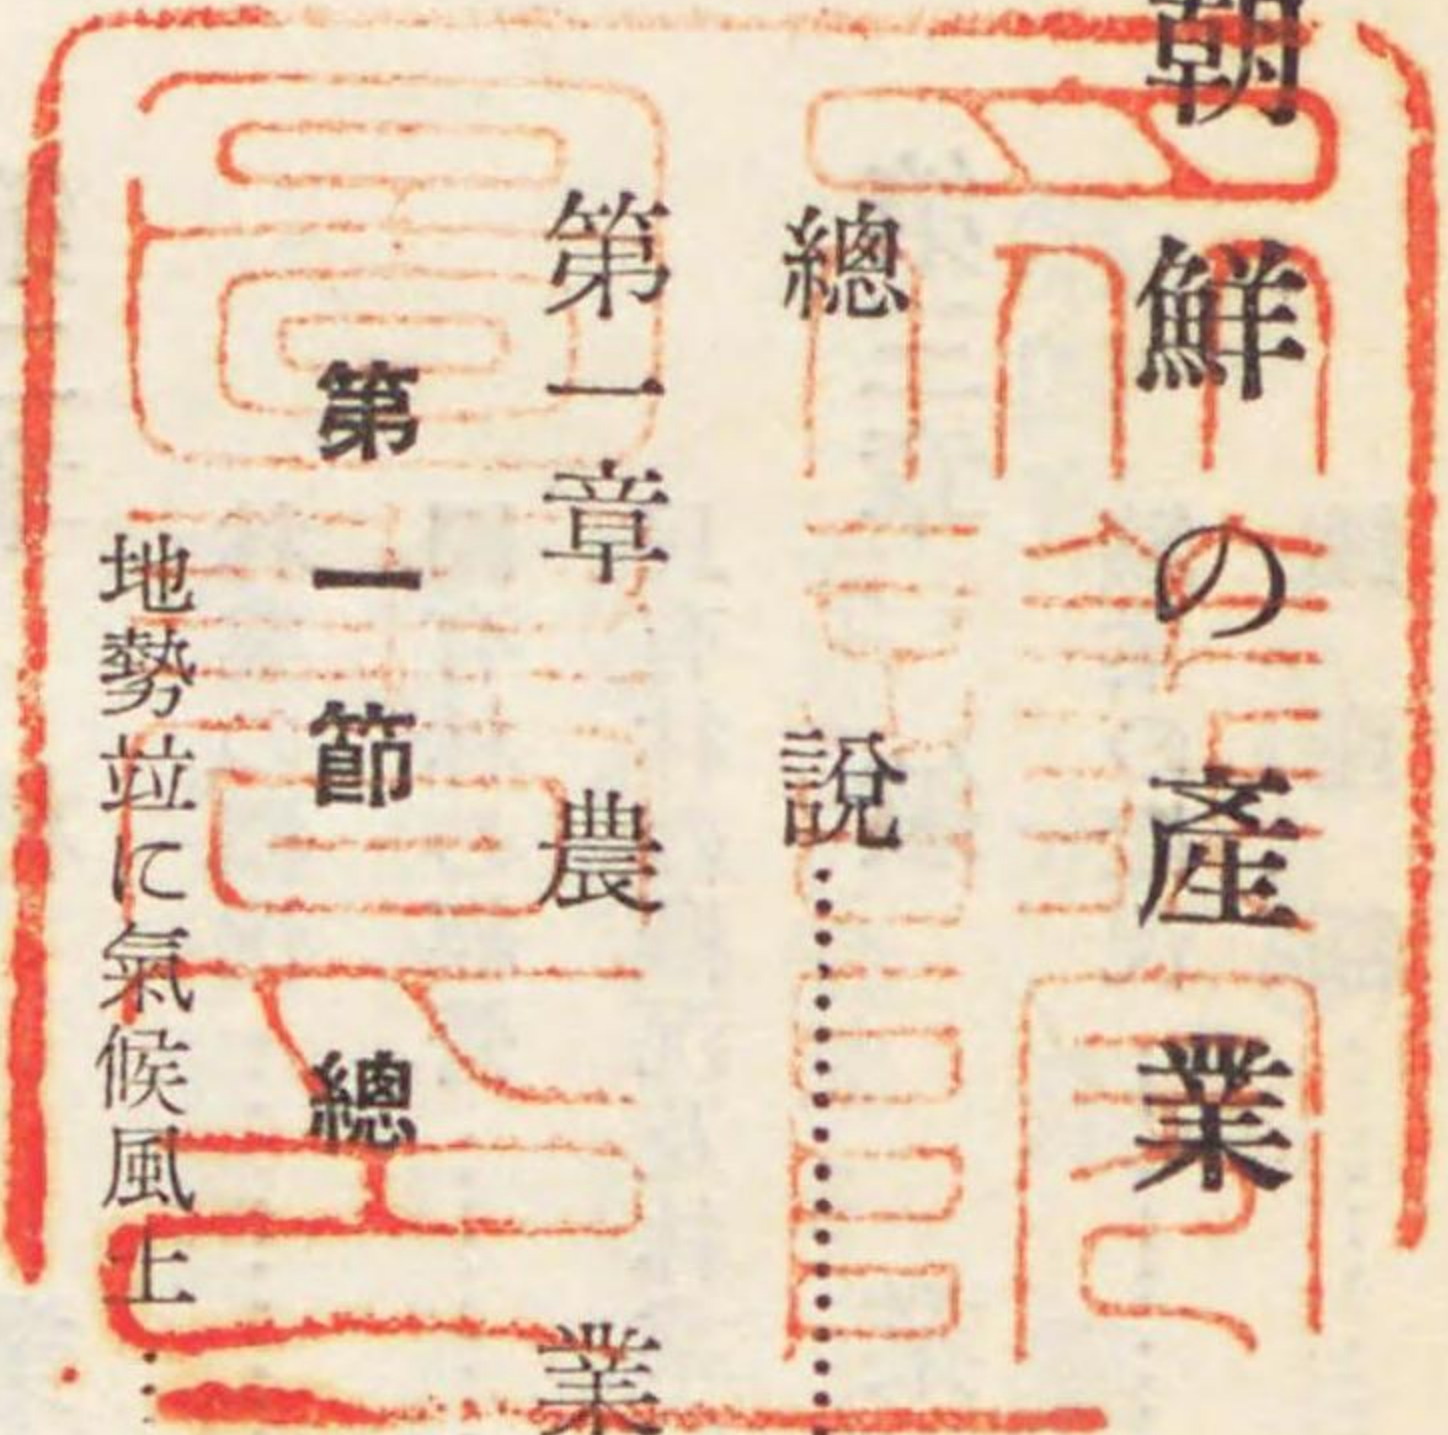 朝鮮の產業
總說
第一章 農業
第一節 總
地勢並に氣候風土